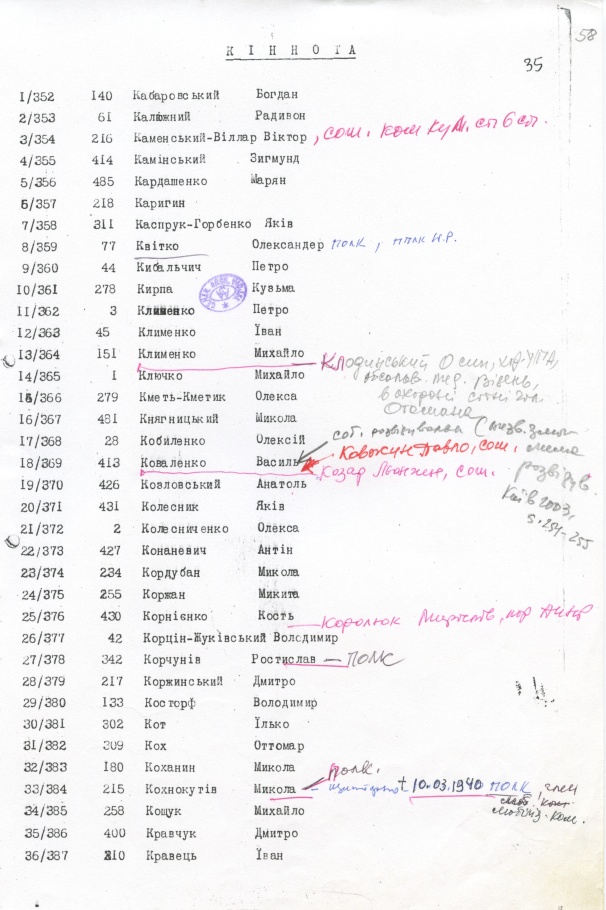 58
КІННОТА
35
1/352 140 Кабаровський Богдан
2/353 61 Калюжний Радивон
3/354 216 Каменський-Віллар Віктор, сот. ком кул. сп 6 сп.
4/355 414 Камінський Зигмунд
5/356 485 Кардашенко Марян
6/357 218 Каригин
7/358 311 Каспрук-Горбенко Яків
8/359 77 Квітко Олександер полк, ппл
9/360 44 Кибальчич Петро
10/361 278 Кирпа Кузьма
11/362 3 Клименко Петро
12/363 45 Клименко Їван
13/364 151 Клименко Михайло Клодницький Осип, хор. УГА,
14/365 1 Ключко Михайло Відень,
15/366 279 Кметь-Кметик Олекса в охороні сотні гол.
Отамана
16/367 481 Княгницький Микола
17/368 28 Кобиленко Олексій сот.
18/369 413 Коваленко Василь Павло, сот.
розвідув.
19/370 426 Козловський Анатоль Козар сот.
Київ 2003,
20/371 431 Колесник Яків
s. 254-255
21/372 2 Колесниченко Олекса
22/373 427 Конаневич Антін
23/374 234 Кордубан Микола
24/375 255 Коржан Микита
25/376 430 Корнієнко Кость Королюк
26/377 42 Корцін-Жуківський Володимир
27/378 342 Корчунів Ростислав - ПОЛК
28/379 217 Коржинський Дмитро
29/380 133 Косторф Володимир
30/381 302 Кот Їлько
31/382 309 Кох Оттомар
32/383 180 Коханин Микола полк.
33/384 215 Кохнокутів Микола † 10.03.1940 ПОЛК, член
34/385 258 Кощук Михайло
35/386 400 Кравчук Дмитро
36/387 210 Кравець Їван